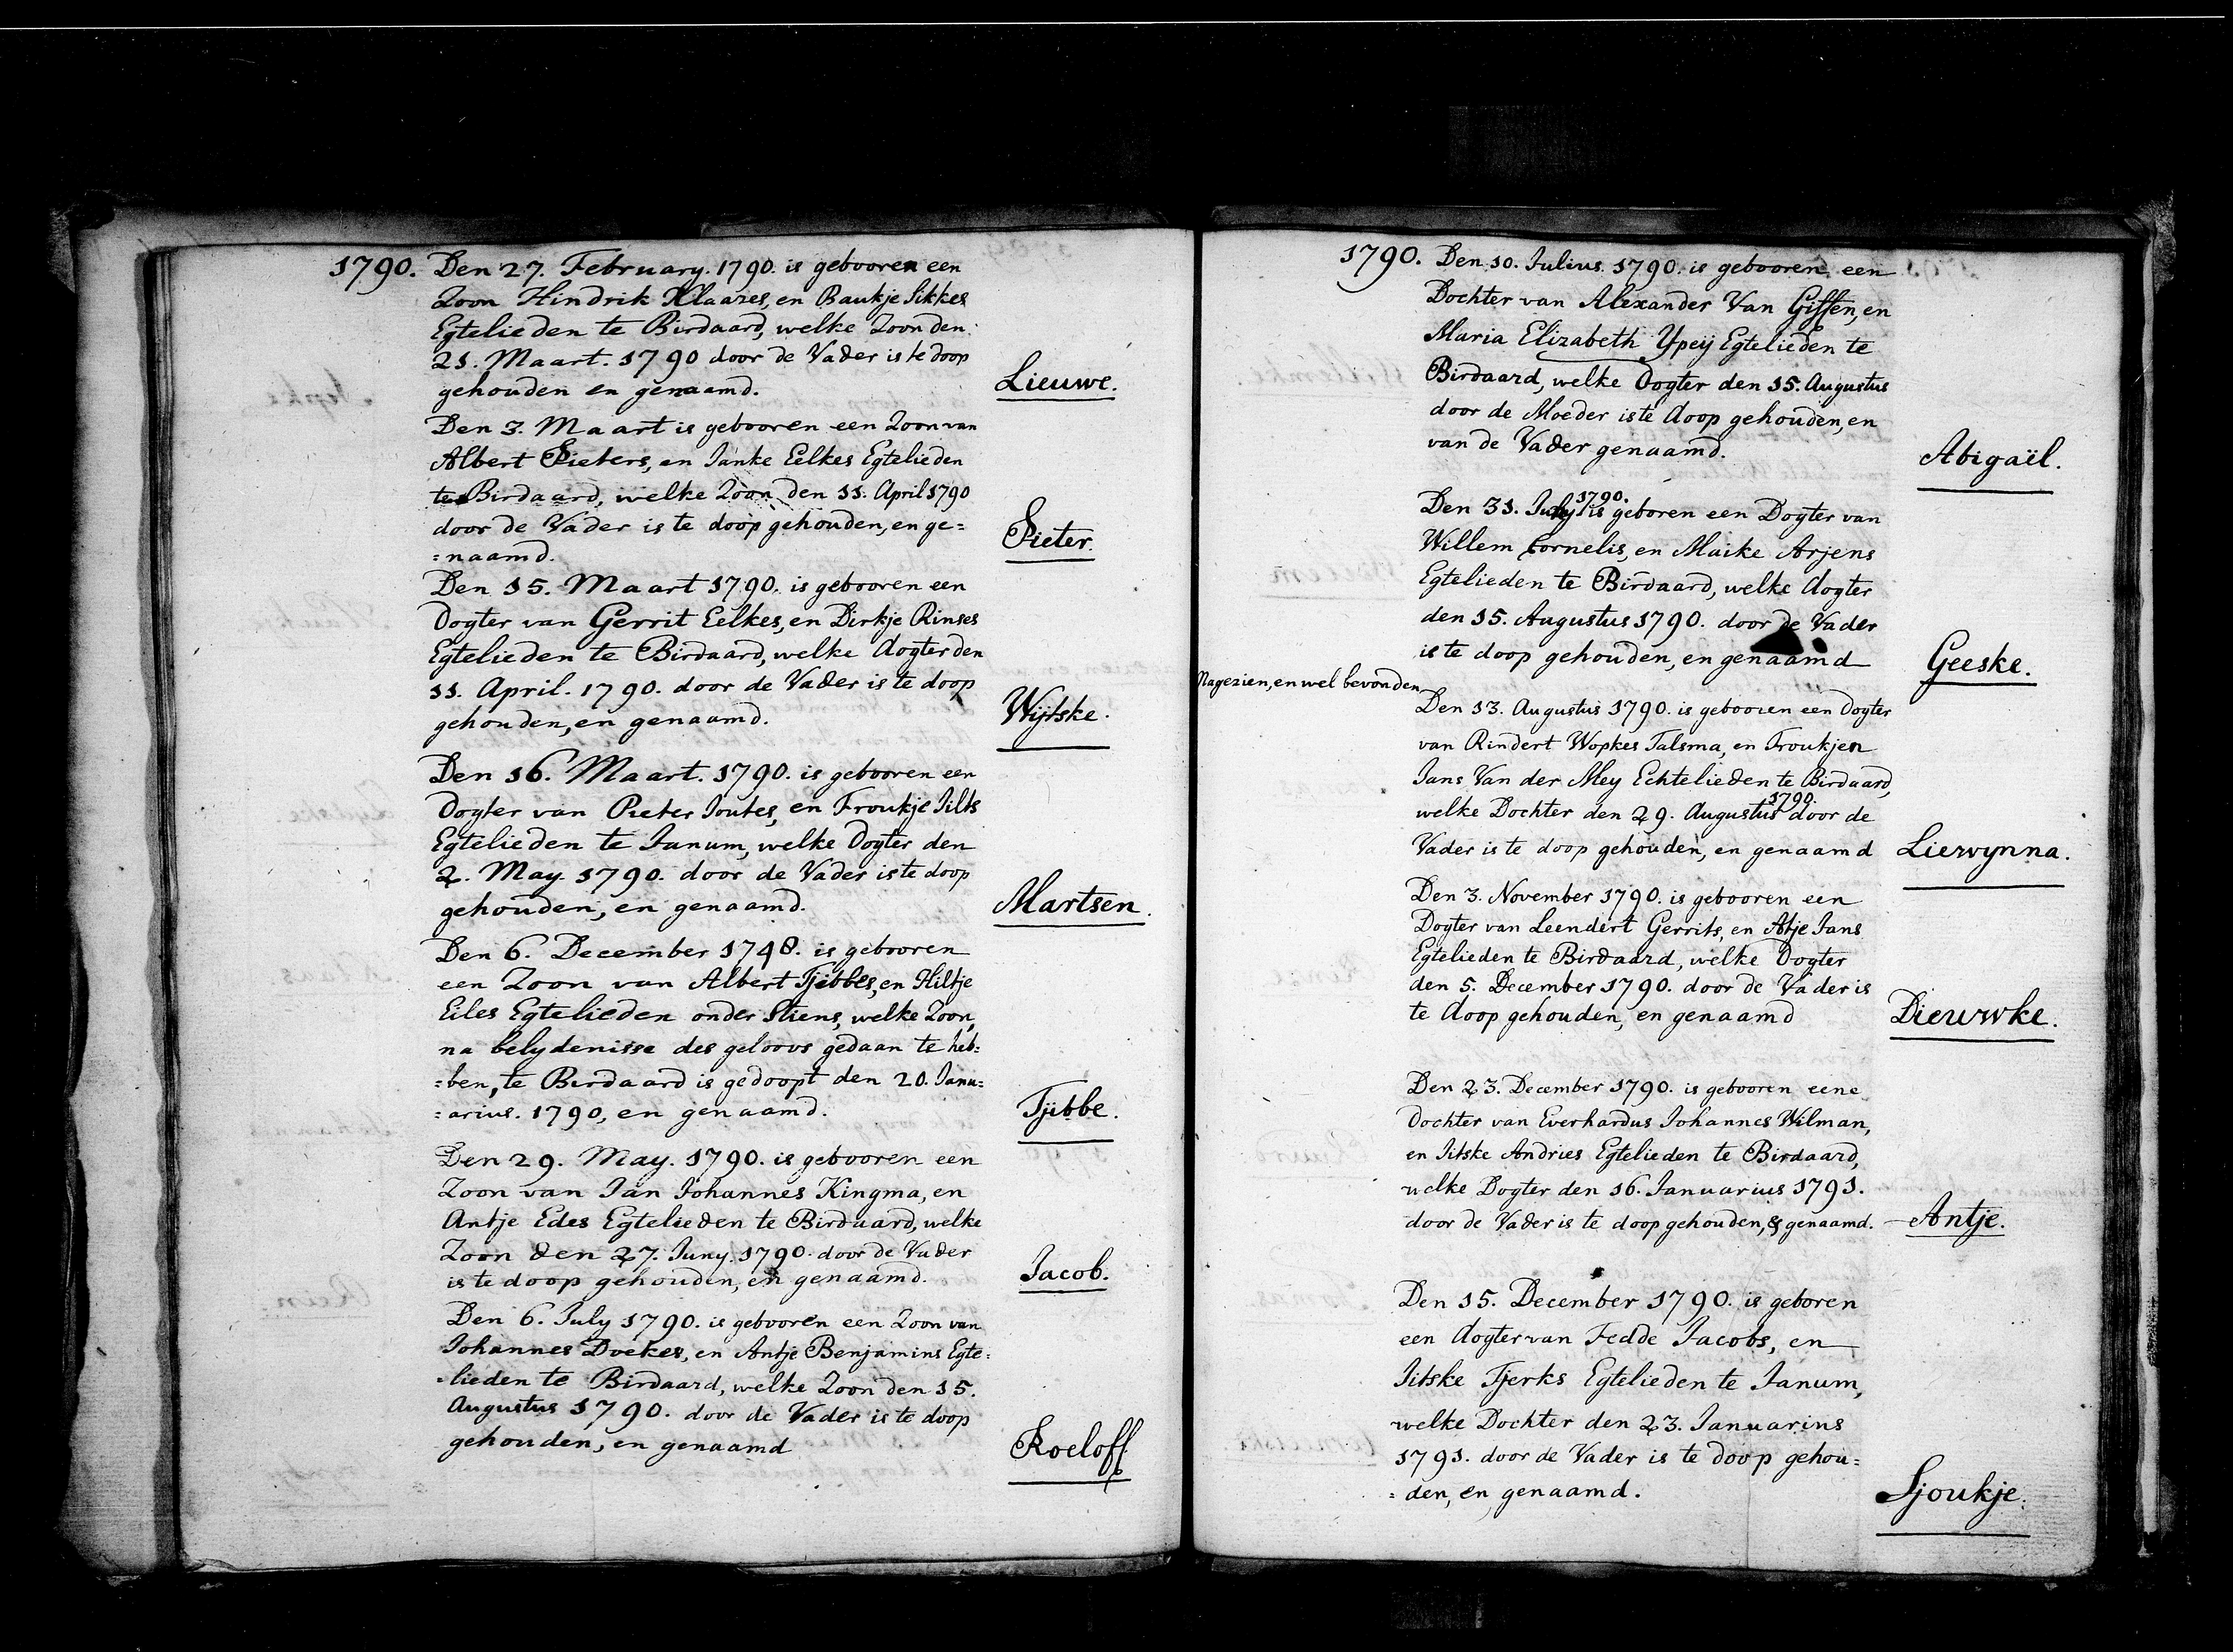 1790. Den 27. February. 1790. is gebooren een
Zoon Hindrik Klaazes, en Baukje Sikkes
Egtelieden te Birdaard, welke Zoon den
21. Maart. 1790 door de Vader is te doop
gehouden en genaamd. Lieuwe.
Den 3. Maart is gebooren een Zoon van
Albert Pieters, en Janke Eelkes Egtelieden
te Birdaard, welke Zoon den 11. April 1790
door de Vader is te doop gehouden, en ge=
=naamd. Pieter.
Den 15. Maart 1790. is gebooren een
Dogter van Gerrit Eelkes, en Dirkje Rinses
Egtelieden te Birdaard, welke dogter den
11. April. 1790. door de Vader is te doop
gehouden, en genaamd. Wijtske.
Den 16. Maart. 1790. is gebooren een
Dogter van Pieter Joutes, en Froukje Jilts
Egtelieden te Janum, welke Dogter den
2. May. 1790. door de Vader is te doop
gehouden, en genaamd. Martsen.
Den 6. December 1748. is gebooren
een Zoon van Albert Tjibbes, en Hiltje
Eiles Egtelieden onder Stiens, welke Zoon,
na belydenisse des geloovs gedaan te heb=
=ben, te Birdaard is gedoopt den 20. Janu=
=arius. 1790, en genaamd. Tjibbe.
Den 29. May. 1790. is gebooren een
Zoon van Jan Johannes Kingma, en
Antje Edes Egtelieden te Birdaard, welke
Zoon den 27. Juny. 1790. door de Vader
is te doop gehouden, en genaamd. Jacob.
Den 6. July 1790. is gebooren een Zoon van
Johannes Doekes, en Antje Benjamins Egte=
=lieden te Birdaard, welke Zoon den 15.
Augustus 1790. door de Vader is te doop
gehouden, en genaamd Roeloff.
1790. Den 10. Julius. 1790. is gebooren een
Dochter van Alexander Van Giffen, en
Maria Elizabeth Ypeij Egtelieden te
Birdaard, welke Dogter den 15. Augustus
door de Moeder is te doop gehouden, en
van de Vader genaamd. Abigaël.
Den 31. July 1790. is geboren een Dogter van
Willem Cornelis, en Maike Arjens
Egtelieden te Birdaard, welke dogter
den 15. Augustus 1790. door de Vader
is te doop gehouden, en genaamd Geeske.
Nagezien, en wel bevonden
Den 13. Augustus 1790. is gebooren een Dogter
van Rindert Wopkes Talsma, en Froukjen
Jans Van der Meij Echtelieden te Birdaard,
welke Dochter den 29. Augustus 1790. door de
Vader is te doop gehouden, en genaamd Liewynna.
Den 3. November 1790. is gebooren een
Dogter van Leendert Gerrits, en Atje Jans
Egtelieden te Birdaard, welke Dogter
den 5. December 1790. door de Vader is
te doop gehouden, en genaamd Dieuwke.
Den 23. December 1790. is gebooren eene
Dochter van Everhardus Johannes Wilman,
en Jitske Andries Egtelieden te Birdaard,
welke Dogter den 16. Januarius 1791.
door de Vader is te doop gehouden, & genaamd. Antje.
Den 15. December 1790. is geboren
een dogter van Fedde Jacobs, en
Jitske Tjerks Egtelieden te Janum,
welke Dochter den 23. Januarius
1791. door de Vader is te doop gehou=
=den, en genaamd. Sjoukje.